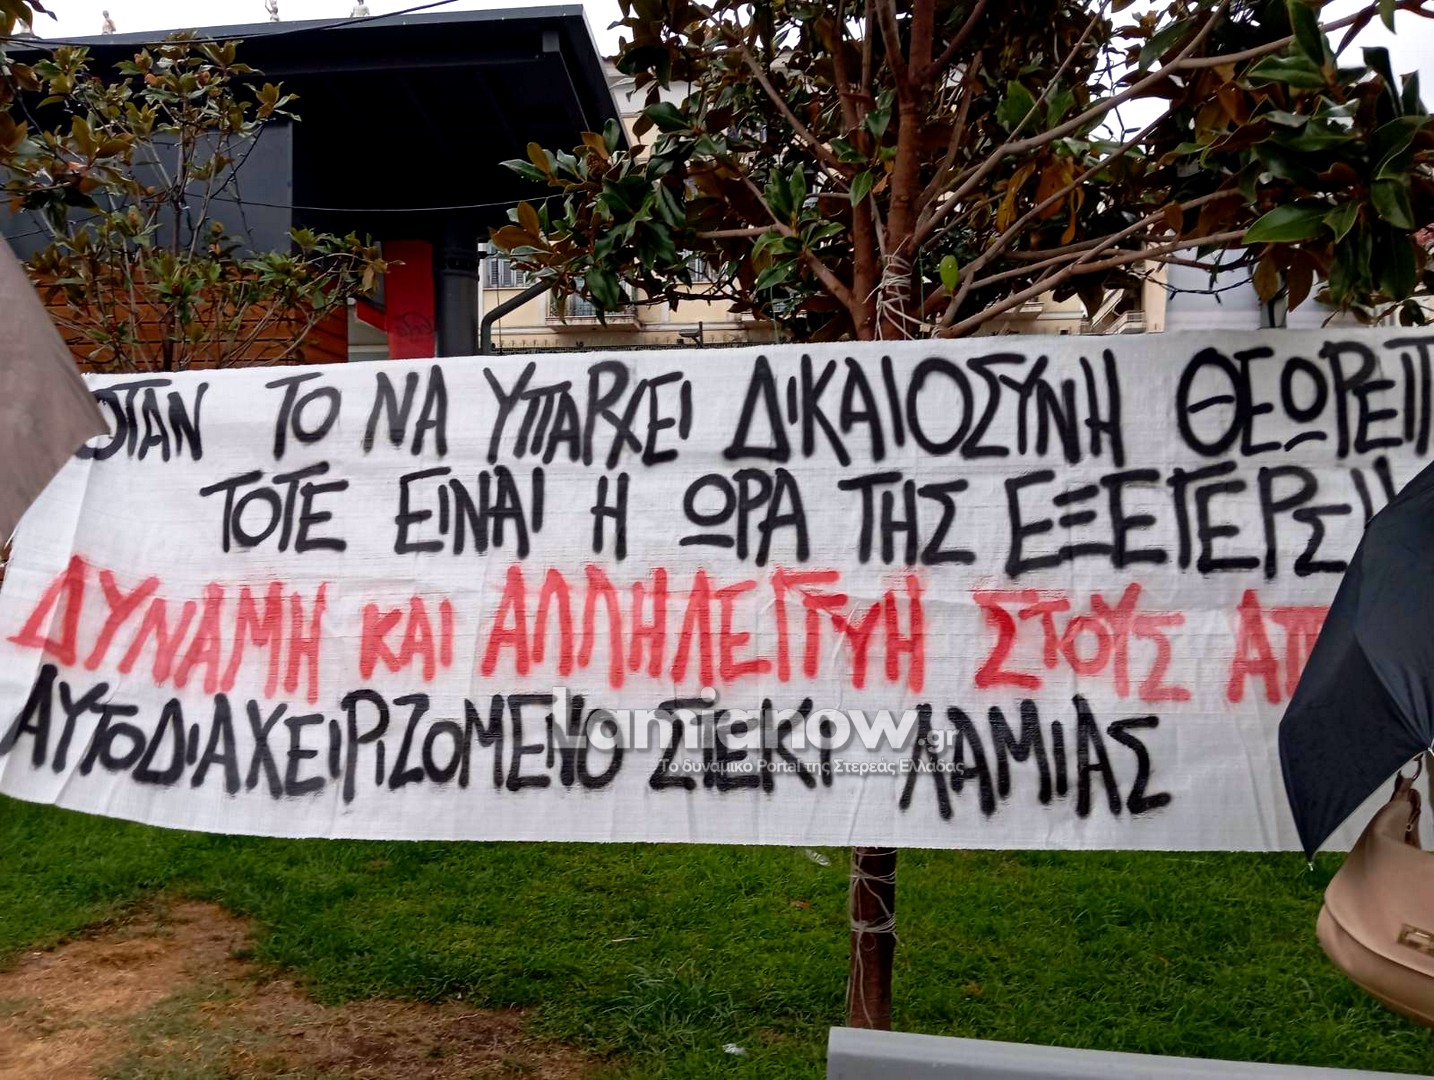 ΟΤΑΝ ΤΟ ΝΑ ΥΠΑΡΧΕΙ ΔΙΚΑΙΟΣΥΝΗ
ΤΟΤΕ ΕΙΝΑΙ Η ΩΡΑ ΤΗΣ
ΔΥΝΑΜΗ ΚΑΙ ΑΛΛΗΛΕΓΓΥΗ ΣΤΟΥΣ
ΑΥΤΟΔΙΑΧΕΙΡΙΖΟΜΕΝΟ ΣΤΕΚΙ ΛΑΜΙΑΣ
Lamianow.gr
Το δυναμικό Portal της Στερεάς Ελλάδας